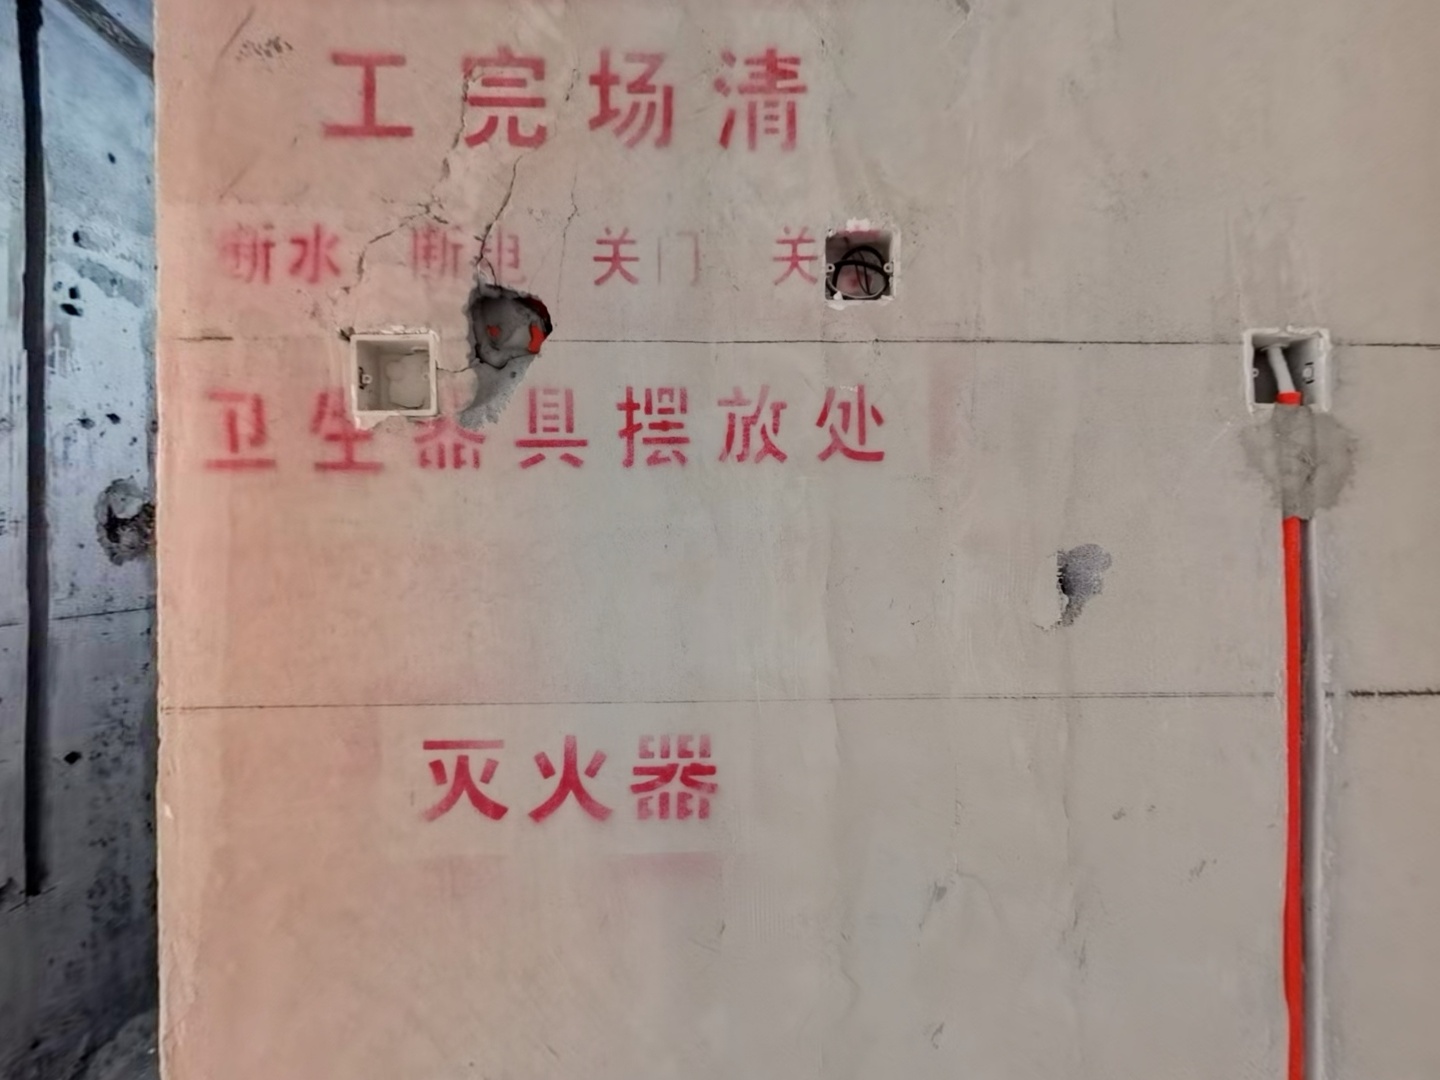 工完场清
断水 断电 关门 关
卫生器具摆放处
灭火器